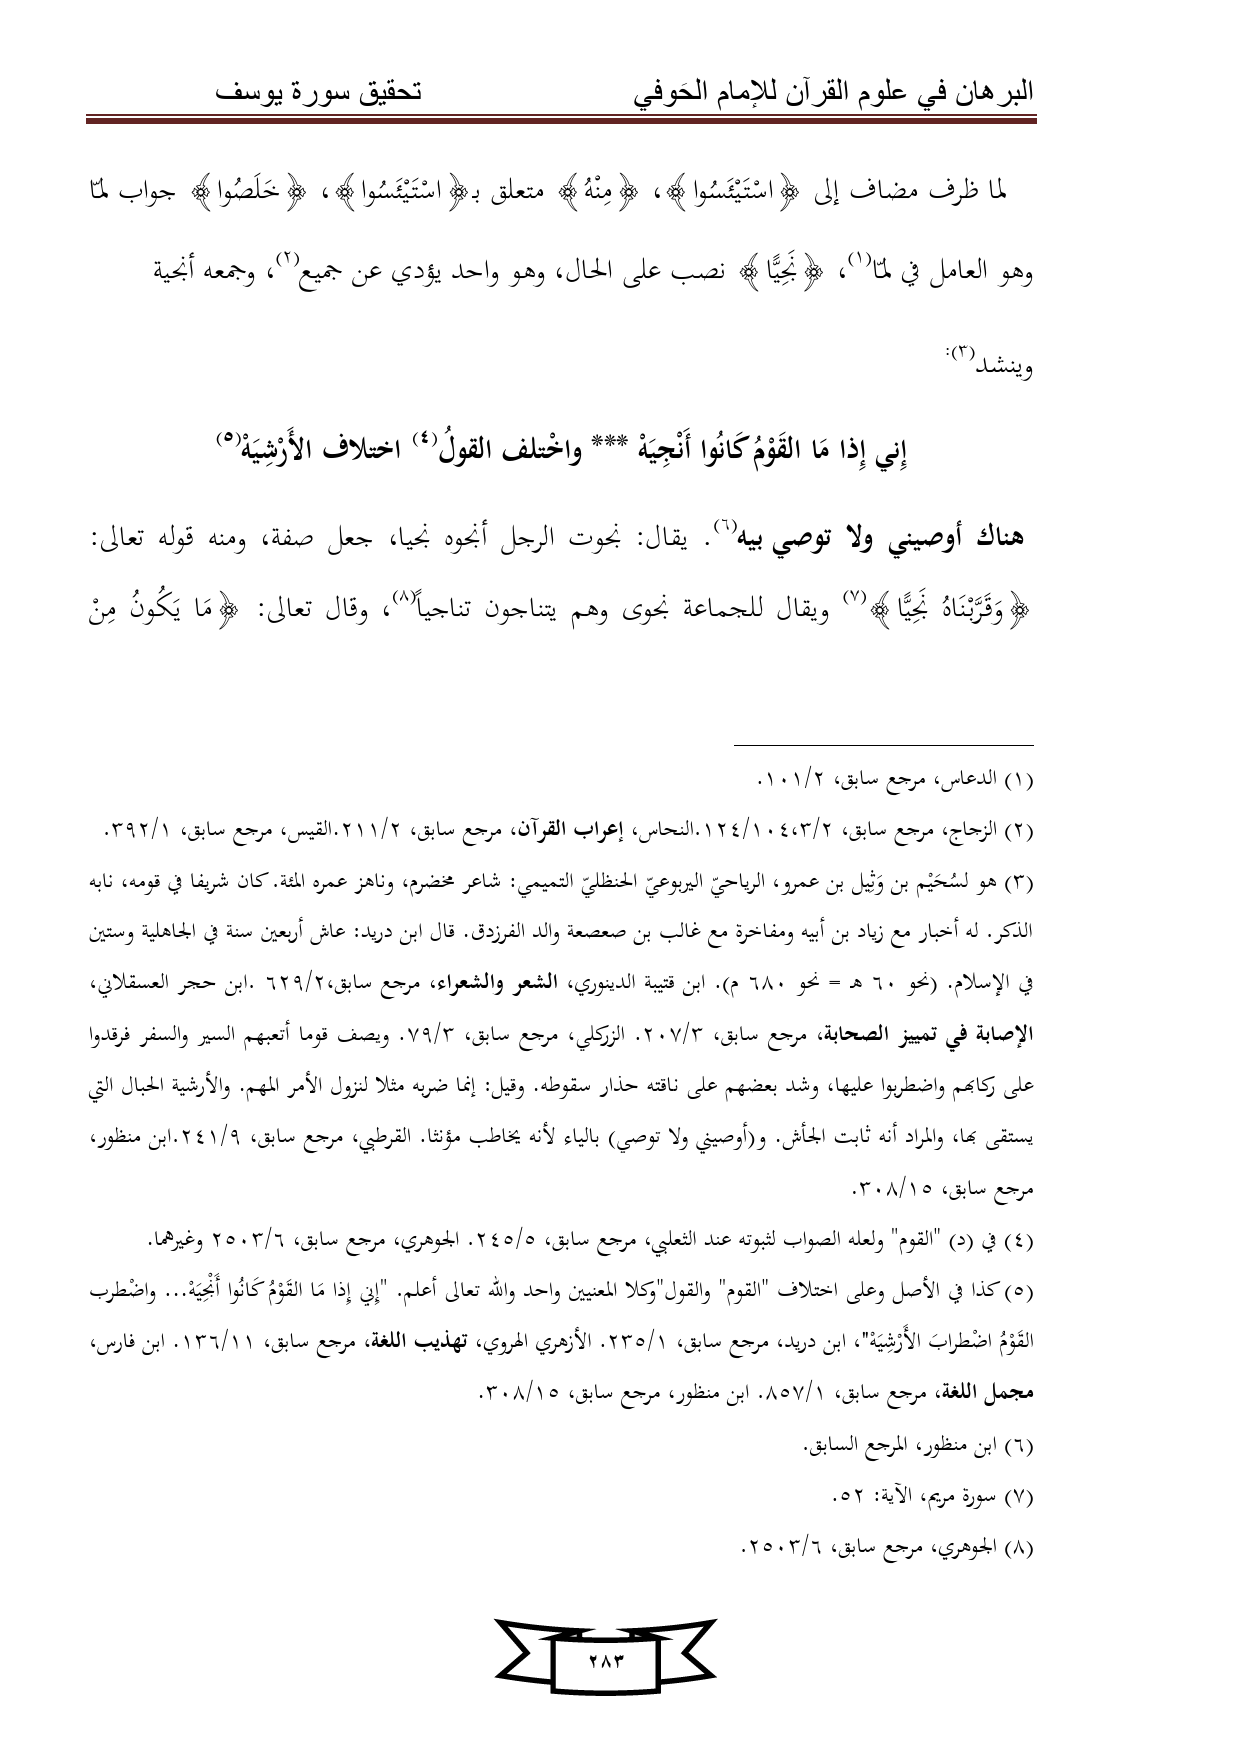 البرهان في علوم القرآن للإمام الحَوفي تحقيق سورة يوسف
لما ظرف مضاف إلى ﴿اسْتَيْئَسُوا﴾، ﴿مِنْهُ﴾ متعلق بـ﴿اسْتَيْئَسُوا﴾، ﴿خَلَصُوا﴾ جواب لمّا
وهو العامل في لمّا(١)، ﴿نَجِيًّا﴾ نصب على الحال، وهو واحد يؤدي عن جميع(٢)، وجمعه أنجية
وينشد(٣):
إِني إِذا مَا القَوْمُ كَانُوا أَنْجِيَهْ *** واخْتلف القولُ(٤) اختلاف الأَرْشِيَهْ(٥)
هناك أوصيني ولا توصي بيه(٦). يقال: نجوت الرجل أنجوه نجيا، جعل صفة، ومنه قوله تعالى:
﴿وَقَرَّبْنَاهُ نَجِيًّا﴾(٧) ويقال للجماعة نجوى وهم يتناجون تناجياً(٨)، وقال تعالى: ﴿مَا يَكُونُ مِنْ
(١) الدعاس، مرجع سابق، ١٠١/٢.
(٢) الزجاج، مرجع سابق، ١٢٤/١٠٤،٣/٢.النحاس، إعراب القرآن، مرجع سابق، ٢١١/٢.القيس، مرجع سابق، ٣٩٢/١.
(٣) هو لسُحَيْم بن وَثِيل بن عمرو، الرياحيّ اليربوعيّ الحنظليّ التميمي: شاعر مخضرم، وناهز عمره المئة. كان شريفا في قومه، نابه
الذكر. له أخبار مع زياد بن أبيه ومفاخرة مع غالب بن صعصعة والد الفرزدق. قال ابن دريد: عاش أربعين سنة في الجاهلية وستين
في الإسلام. (نحو ٦٠ هـ = نحو ٦٨٠ م). ابن قتيبة الدينوري، الشعر والشعراء، مرجع سابق،٦٢٩/٢ .ابن حجر العسقلاني،
الإصابة في تمييز الصحابة، مرجع سابق، ٢٠٧/٣. الزركلي، مرجع سابق، ٧٩/٣. ويصف قوما أتعبهم السير والسفر فرقدوا
على ركابهم واضطربوا عليها، وشد بعضهم على ناقته حذار سقوطه. وقيل: إنما ضربه مثلا لنزول الأمر المهم. والأرشية الحبال التي
يستقى بها، والمراد أنه ثابت الجأش. و(أوصيني ولا توصي) بالياء لأنه يخاطب مؤنثا. القرطبي، مرجع سابق، ٢٤١/٩.ابن منظور،
مرجع سابق، ٣٠٨/١٥.
(٤) في (د) "القوم" ولعله الصواب لثبوته عند الثعلبي، مرجع سابق، ٢٤٥/٥. الجوهري، مرجع سابق، ٢٥٠٣/٦ وغيرهما.
(٥) كذا في الأصل وعلى اختلاف "القوم" والقول"وكلا المعنيين واحد والله تعالى أعلم. "إِني إِذا مَا القَوْمُ كَانُوا أَنْجِيَهْ... واضْطرب
القَوْمُ اضْطرابَ الأَرْشِيَهْ"، ابن دريد، مرجع سابق، ٢٣٥/١. الأزهري الهروي، تهذيب اللغة، مرجع سابق، ١٣٦/١١. ابن فارس،
مجمل اللغة، مرجع سابق، ٨٥٧/١. ابن منظور، مرجع سابق، ٣٠٨/١٥.
(٦) ابن منظور، المرجع السابق.
(٧) سورة مريم، الآية: ٥٢.
(٨) الجوهري، مرجع سابق، ٢٥٠٣/٦.
٢٨٣